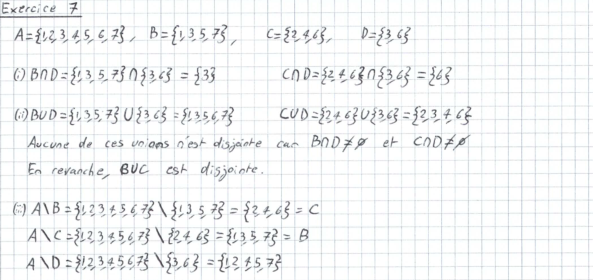 Exercice 7
A={1,2,3,4,5,6,7}, B={1,3,5,7}, C={2,4,6}, D={3,6}
(i) B∩D={1,3,5,7}∩{3,6} = {3} C∩D={2,4,6}∩{3,6} = {6}
(ii) B∪D={1,3,5,7}∪{3,6}={1,3,5,6,7} C∪D={2,4,6}∪{3,6}={2,3,4,6}
Aucune de ces unions n'est disjointe car B∩D≠∅ et C∩D≠∅
En revanche, B∪C est disjointe.
(iii) A\B={1,2,3,4,5,6,7}\{1,3,5,7}={2,4,6}=C
A\C={1,2,3,4,5,6,7}\{2,4,6}={1,3,5,7}=B
A\D={1,2,3,4,5,6,7}\{3,6}={1,2,4,5,7}